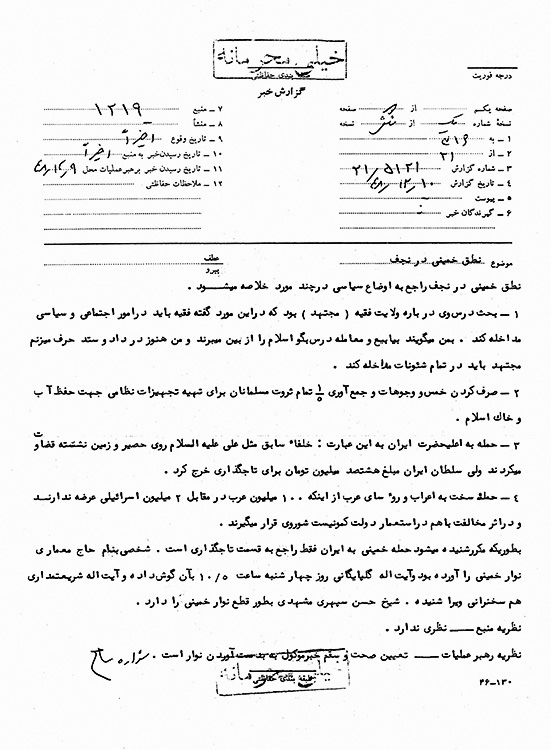 خیلی محرمانه
طبقه بندی حفاظتی
درجه فوریت
گزارش خبر
صفحه یکم از صفحه
نسخهٔ شماره یک از شش نسخه
۱ ـ به ۳۱۶
۲ ـ از ۲۱
۳ ـ شماره گزارش ۲۱/۵۱۲۱
۴ ـ تاریخ گزارش ۴۸/۱۲/۱۰
۵ ـ پیوست
۶ ـ گیرندگان خبر
۷ ـ منبع ۱۲۱۹
۸ ـ منشأ
۹ ـ تاریخ وقوع اخیراً
۱۰ ـ تاریخ رسیدن خبر به منبع اخیراً
۱۱ ـ تاریخ رسیدن خبر برهبر عملیات محل ۴۸/۱۲/۹
۱۲ ـ ملاحظات حفاظتی
موضوع نطق خمینی در نجف
عطف
پیرو
نطق خمینی در نجف راجع به اوضاع سیاسی در چند مورد خلاصه میشود .
۱ ـ بحث درس وی در باره ولایت فقیه ( مجتهد ) بود که در این مورد گفته فقیه باید در امور اجتماعی و سیاسی
مداخله کند . بمن میگویند بیا بیع و معامله درس بگو اسلام را از بین میبرند و من هنوز در داد و ستد حرف میزنم
مجتهد باید در تمام شئونات مداخله کند .
۲ ـ صرف کردن خمس و وجوهات و جمع آوری ۱/۵ تمام ثروت مسلمانان برای تهیه تجهیزات نظامی جهت حفظ آب
و خاک اسلام .
۳ ـ حمله به اعلیحضرت ایران به این عبارت : خلفاء سابق مثل علی علیه السلام روی حصیر و زمین نشسته قضاوت
میکردند ولی سلطان ایران مبلغ هشتصد میلیون تومان برای تاجگذاری خرج کرد .
۴ ـ حمله سخت به اعراب و روء سای عرب از اینکه ۱۰۰ میلیون عرب در مقابل ۲ میلیون اسرائیلی عرضه ندارند
و در اثر مخالفت با هم در استعمار دولت کمونیست شوروی قرار میگیرند .
بطوریکه مکرر شنیده میشود حمله خمینی به ایران فقط راجع به قسمت تاجگذاری است . شخصی بنام حاج معماری
نوار خمینی را آورده بود و آیت اله گلپایگانی روز چهار شنبه ساعت ۱۰/۵ بآن گوش داده و آیت اله شریعتمداری
هم سخنرانی ویرا شنیده . شیخ حسن سپهری مشهدی بطور قطع نوار خمینی را دارد .
نظریه منبع ــ نظری ندارد .
نظریه رهبر عملیات ــ تعیین صحت و سقم خبر موکول به بدست آوردن نوار است .
خیلی محرمانه
طبقه بندی حفاظتی
۴۶-۱۳۰